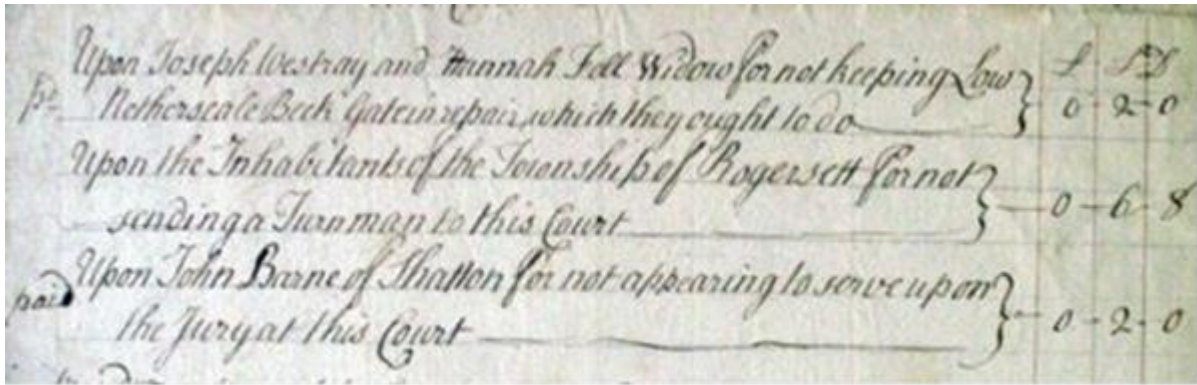 £ S D
Upon Joseph Westray and Hannah Fell Widow for not keeping Low
pd Netherscale Beck Gate in repair, which they ought to do 0 - 2 - 0
Upon the Inhabitants of the Township of Rogersett for not
sending a Turnman to this Court 0 - 6 - 8
paid Upon John Barne of Shatton for not appearing to serve upon
the Jury at this Court 0 - 2 - 0